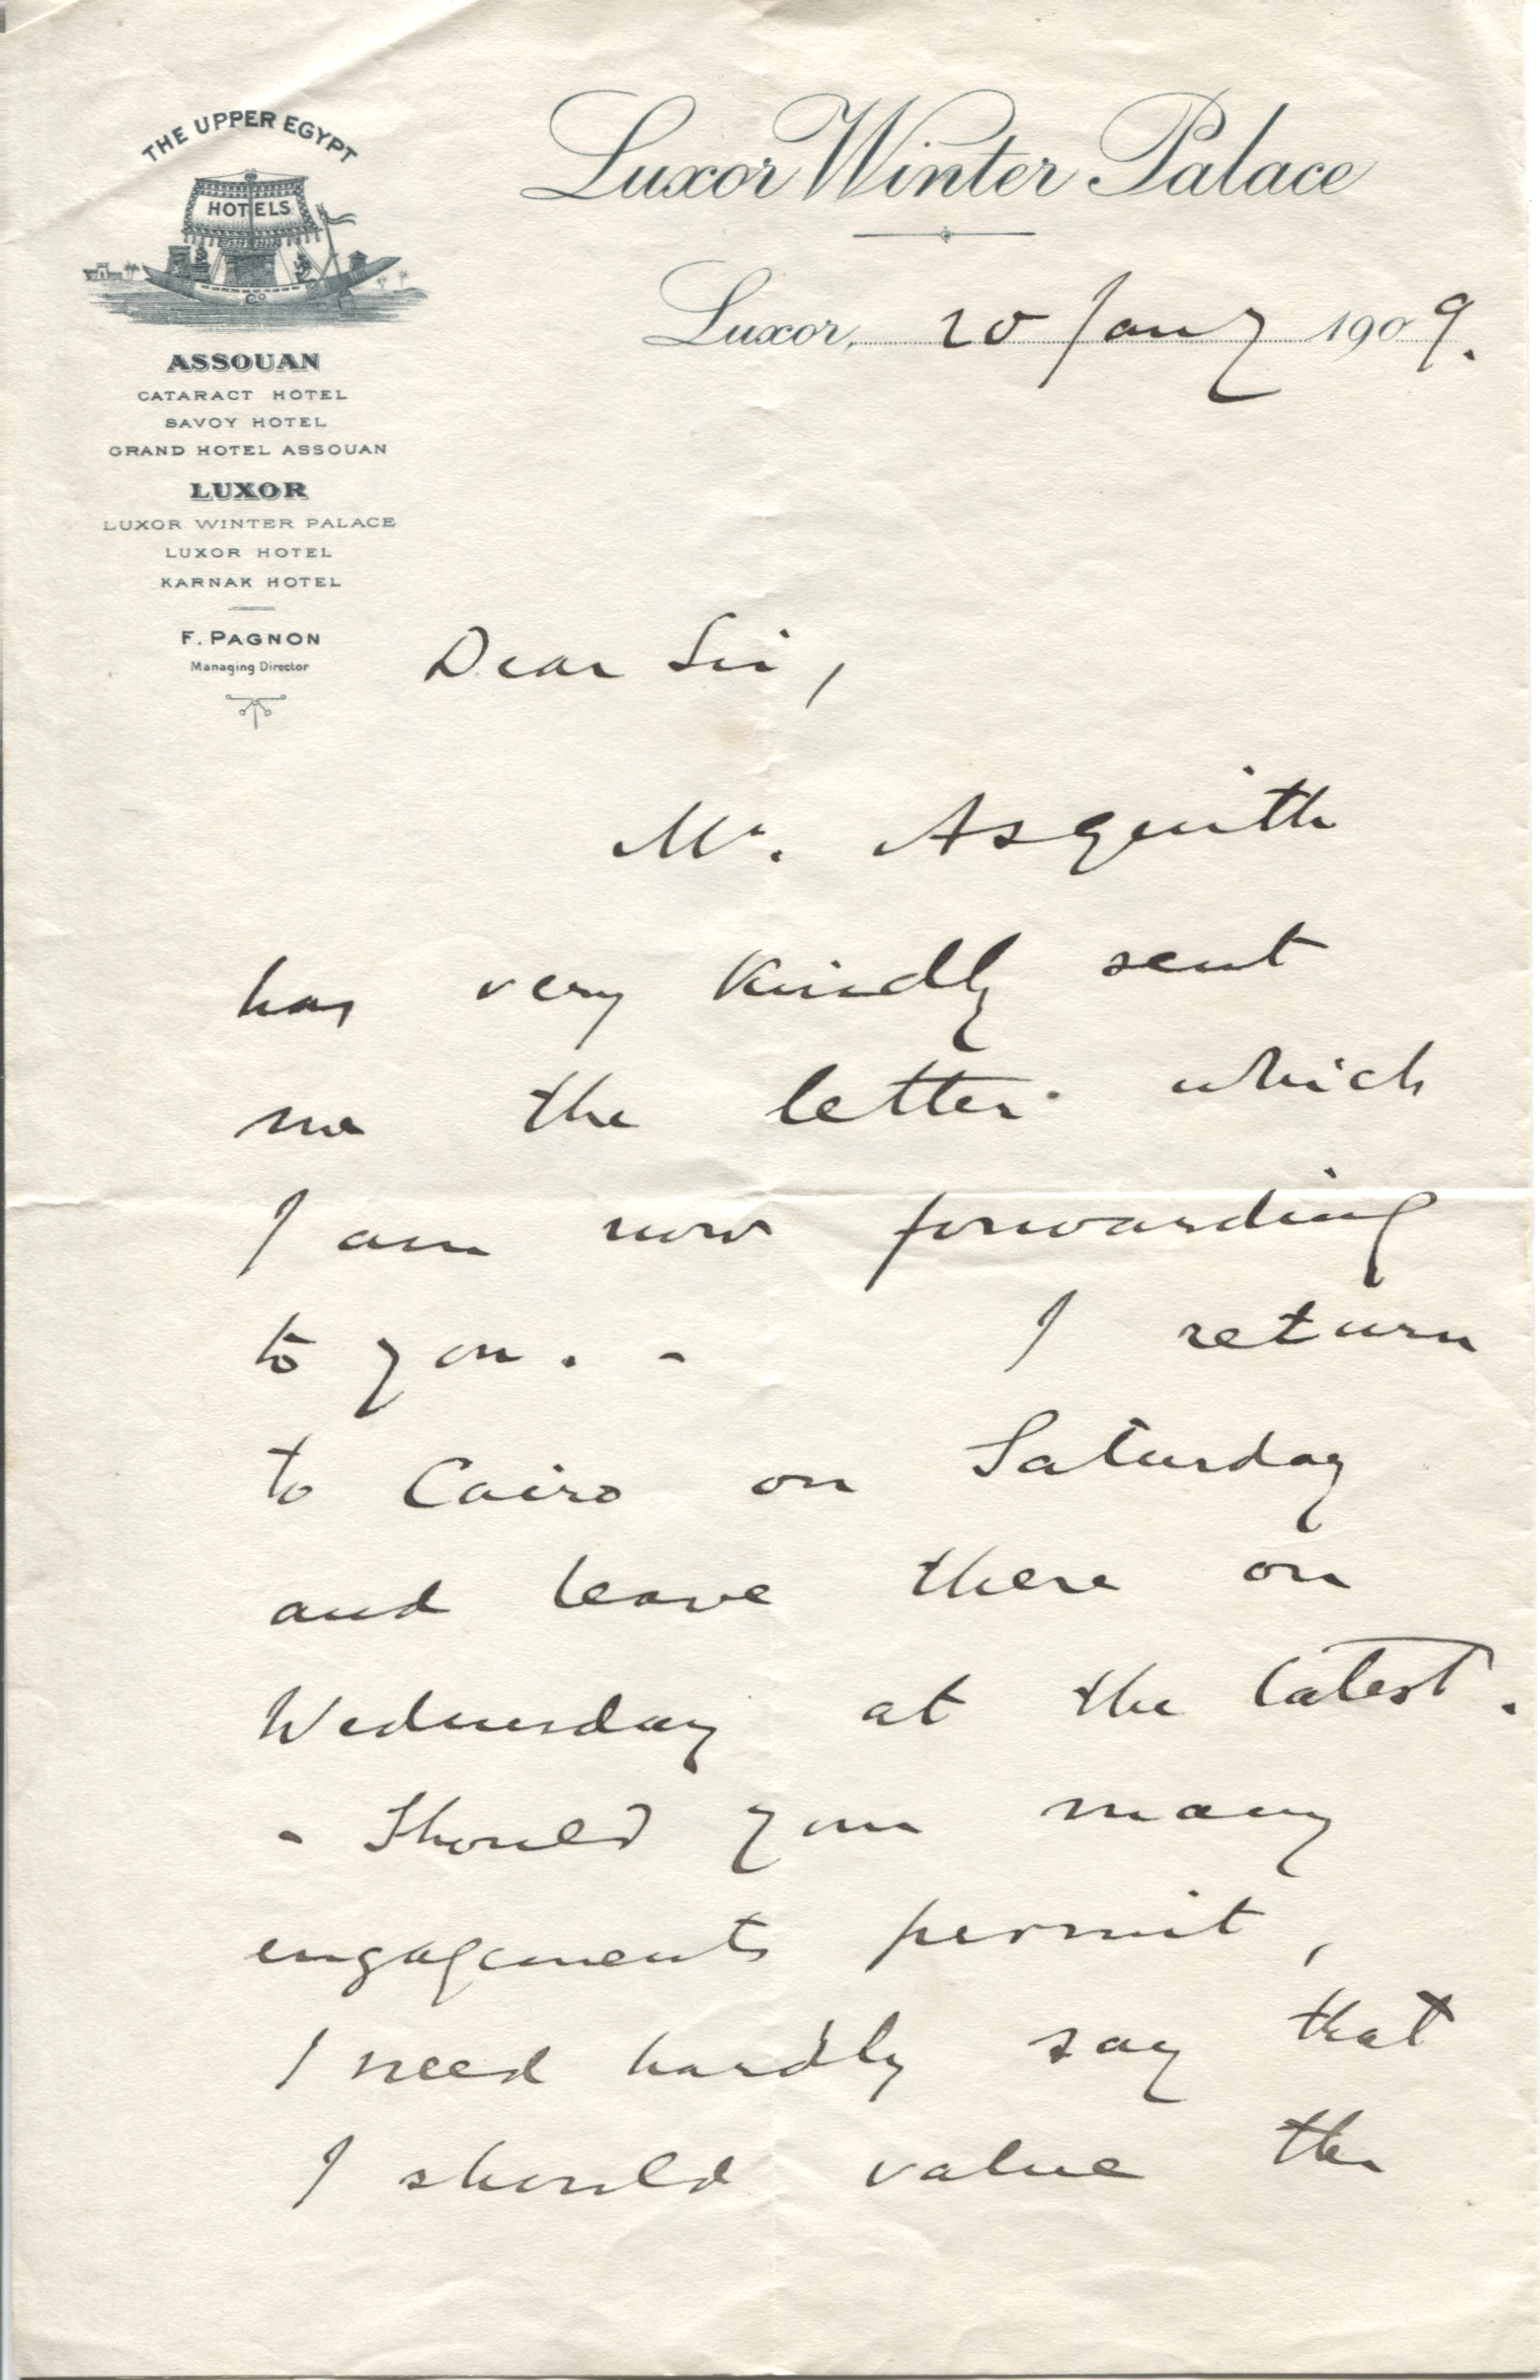 THE UPPER EGYPT
HOTELS
Co
ASSOUAN
CATARACT HOTEL
SAVOY HOTEL
GRAND HOTEL ASSOUAN
LUXOR
LUXOR WINTER PALACE
LUXOR HOTEL
KARNAK HOTEL
F. PAGNON
Managing Director
Luxor Winter Palace
Luxor, 20 Jany 1909.
Dear Sir,
Mr. Asquith
has very kindly sent
me the letter which
I am now forwarding
to you. - I return
to Cairo on Saturday
and leave there on
Wednesday at the latest.
- Should your many
engagements permit,
I need hardly say that
I should value the